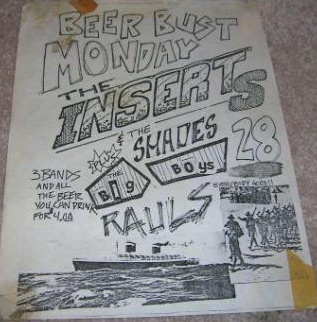 BEER BUST
MONDAY
THE
INSERTS
& THE
SHADES
28
PLUS
THE
BIG BOYS
3 BANDS
AND ALL
THE BEER
YOU CAN DRINK
FOR 4.00
RAULS